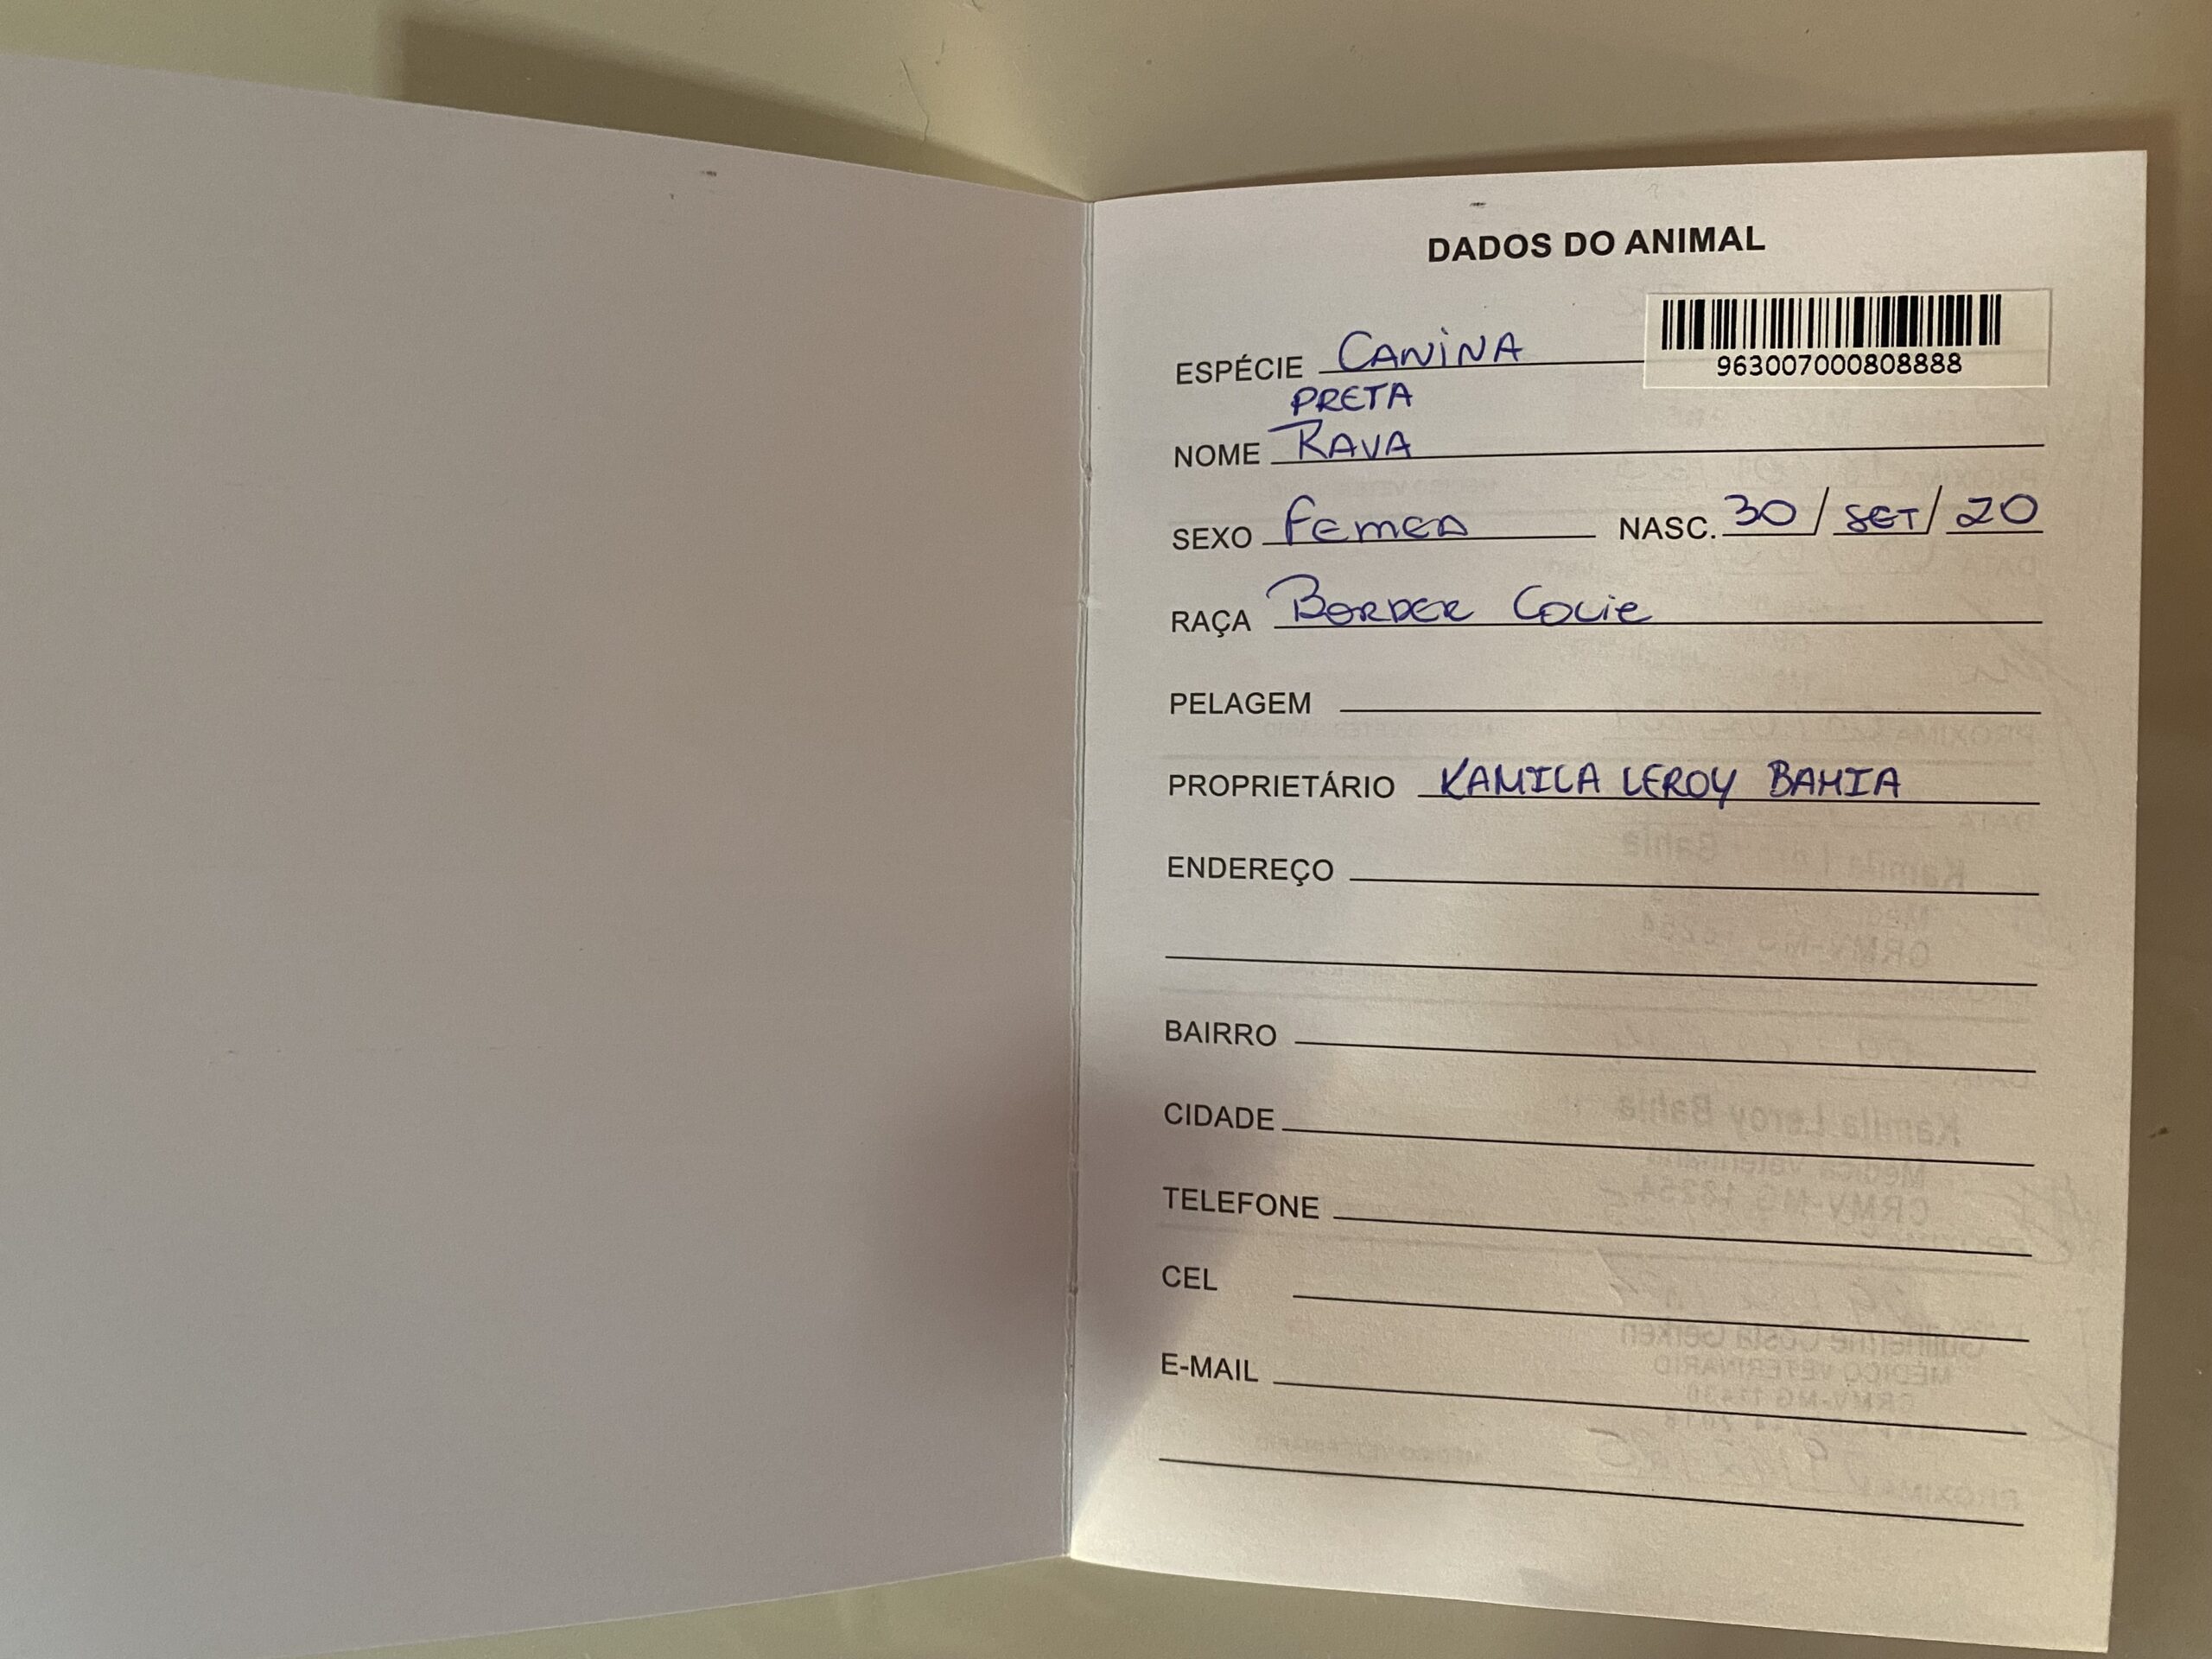 DADOS DO ANIMAL
ESPÉCIE CANINA
963007000808888
PRETA
NOME RAVA
SEXO Femea NASC. 30 / SET / 20
RAÇA BORDER COLIE
PELAGEM
PROPRIETÁRIO KAMILA LEROY BAHIA
ENDEREÇO
BAIRRO
CIDADE
TELEFONE
CEL
E-MAIL